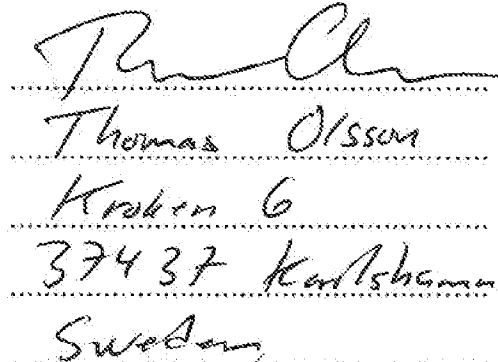 Thomas Olsson
Kroken 6
37437 Karlshamn
Sweden